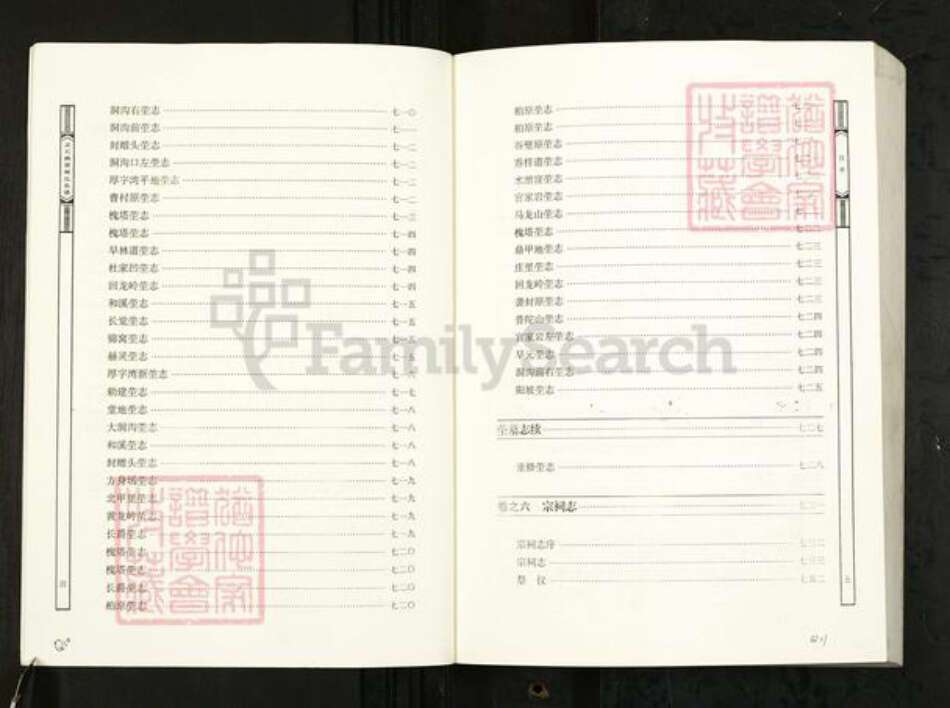 洞沟右茔志 七一〇
洞沟前茔志 七一一
封赠头茔志 七一二
洞沟口左茔志 七一二
厚字湾平地茔志 七一二
曹村原茔志 七一二
槐塔茔志 七一三
槐塔茔志 七一四
早林道茔志 七一四
杜家凹茔志 七一四
回龙岭茔志 七一四
和溪茔志 七一五
长觉茔志 七一五
锦窝茔志 七一五
赫灵茔志 七一五
厚字湾新茔志 七一六
勅建茔志 七一七
堂地茔志 七一八
大洞沟茔志 七一八
和溪茔志 七一八
封赠头茔志 七一八
方身塔茔志 七一九
北甲里茔志 七一九
黄龙岭茔志 七一九
长爵茔志 七一九
槐塔茔志 七二〇
槐塔茔志 七二〇
长爵茔志 七二〇
柏原茔志 七二〇
柏原茔志
柏原茔志
谷壁原茔志
乔梓道茔志
水滑窊茔志
官家岩茔志
马龙山茔志
槐塔茔志 七二二
鼎甲地茔志 七二三
庄里茔志 七二三
回龙岭茔志 七二三
龚封原茔志 七二三
普陀山茔志 七二四
官家岩左茔志 七二四
早元茔志 七二四
洞沟前右茔志 七二四
阳坡茔志 七二五
茔墓志续 七二七
重修茔志 七二八
卷之六 宗祠志 七三一
宗祠志序 七三二
宗祠志 七三三
祭 仪 七五二
目录
五
四
FamilySearch